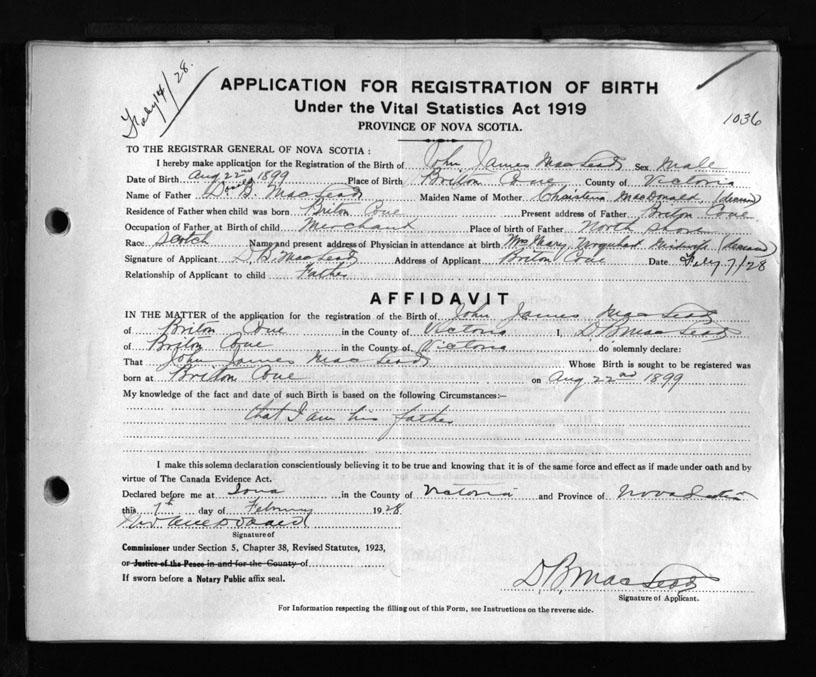 Feby 14/28.
APPLICATION FOR REGISTRATION OF BIRTH
Under the Vital Statistics Act 1919
1036
PROVINCE OF NOVA SCOTIA.
TO THE REGISTRAR GENERAL OF NOVA SCOTIA:
I hereby make application for the Registration of the Birth of John James MacLeod Sex Male
Date of Birth Aug 22nd 1899 Place of Birth Briton Cove County of Victoria
Name of Father B. MacLeod Maiden Name of Mother Christena MacDonald
Residence of Father when child was born Briton Cove Present address of Father Briton Cove
Occupation of Father at Birth of child Merchant Place of birth of Father North Shore
Race Scotch Name and present address of Physician in attendance at birth Mrs Mary Urquhart Midwife
Signature of Applicant D. B. MacLeod Address of Applicant Briton Cove Date Feby 7/28
Relationship of Applicant to child Father
AFFIDAVIT
IN THE MATTER of the application for the registration of the Birth of John James MacLeod
of Briton Cove in the County of Victoria I, D B MacLeod
of Briton Cove in the County of Victoria do solemnly declare:
That John James MacLeod Whose Birth is sought to be registered was
born at Briton Cove on Aug 22nd 1899
My knowledge of the fact and date of such Birth is based on the following Circumstances:–
that I am his father
I make this solemn declaration conscientiously believing it to be true and knowing that it is of the same force and effect as if made under oath and by
virtue of The Canada Evidence Act.
Declared before me at Iona in the County of Victoria and Province of Nova Scotia
this 7th day of February 1928
Signature of
Commissioner under Section 5, Chapter 38, Revised Statutes, 1923,
or Justice of the Peace in and for the County of
If sworn before a Notary Public affix seal.
D. B. MacLeod
Signature of Applicant.
For Information respecting the filling out of this Form, see Instructions on the reverse side.